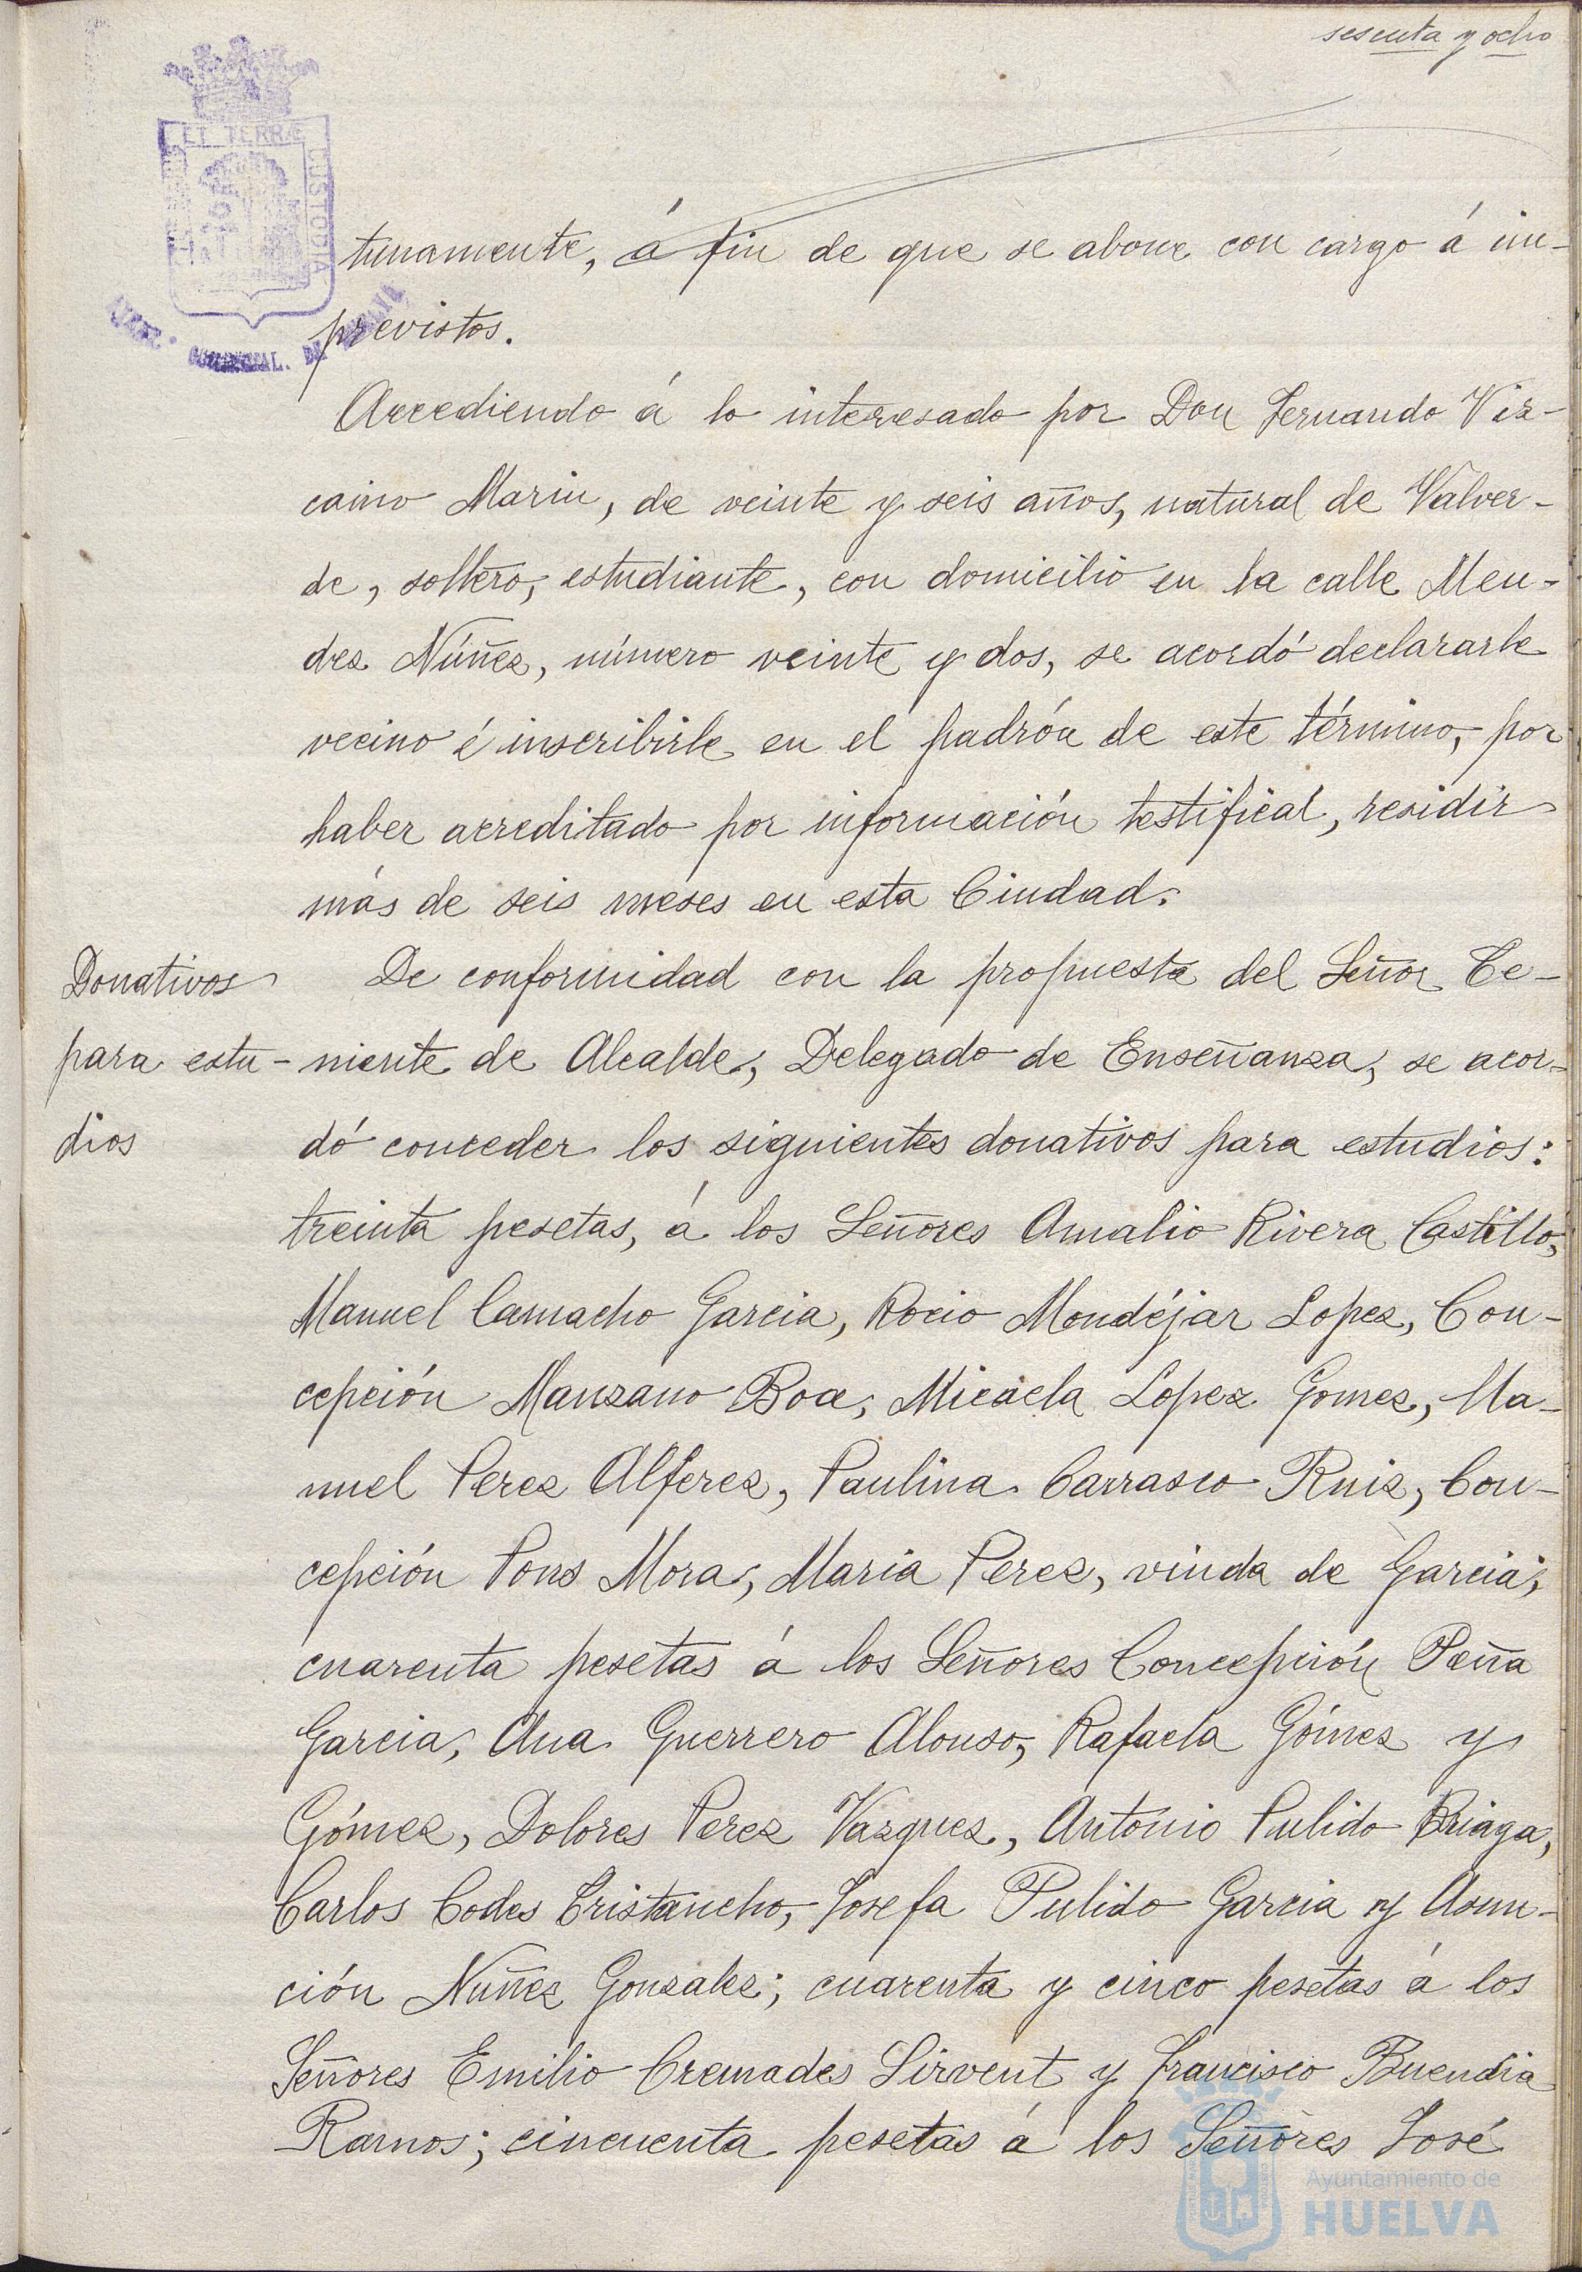 sesenta y ocho
ET TERRÆ
CUSTODIA
tunamente, á fin de que se abone con cargo á im-
previstos.
Accediendo á lo interesado por Don Fernando Viz-
caino Marin, de veinte y seis años, natural de Valver-
de, soltero, estudiante, con domicilio en la calle Men-
dez Núñez, número veinte y dos, se acordó declararle
vecino é inscribirle en el padrón de este término, por
haber acreditado por información testifical, residir
más de seis meses en esta Ciudad.
Donativos
para estu-
dios
De conformidad con la propuesta del Señor Te-
niente de Alcalde, Delegado de Enseñanza, se acor-
dó conceder los siguientes donativos para estudios:
treinta pesetas, á los Señores Amalio Rivera Castillo,
Manuel Camacho Garcia, Rocio Mondéjar Lopez, Con-
cepción Manzano Boa, Micaela Lopez Gomez, Ma-
nuel Perez Alferez, Paulina Carrasco Ruiz, Con-
cepción Pons Mora, Maria Perez, viuda de Garcia;
cuarenta pesetas á los Señores Concepción Peña
Garcia, Ana Guerrero Alonso, Rafaela Gómez y
Gómez, Dolores Perez Vazquez, Antonio Pulido
Carlos Codes Cristancho, Josefa Pulido Garcia y Asun-
ción Nuñez Gonzalez; cuarenta y cinco pesetas á los
Señores Emilio Cremades Sirvent y Francisco Buendia
Ramos; cincuenta pesetas á los Señores José
Ayuntamiento de
HUELVA